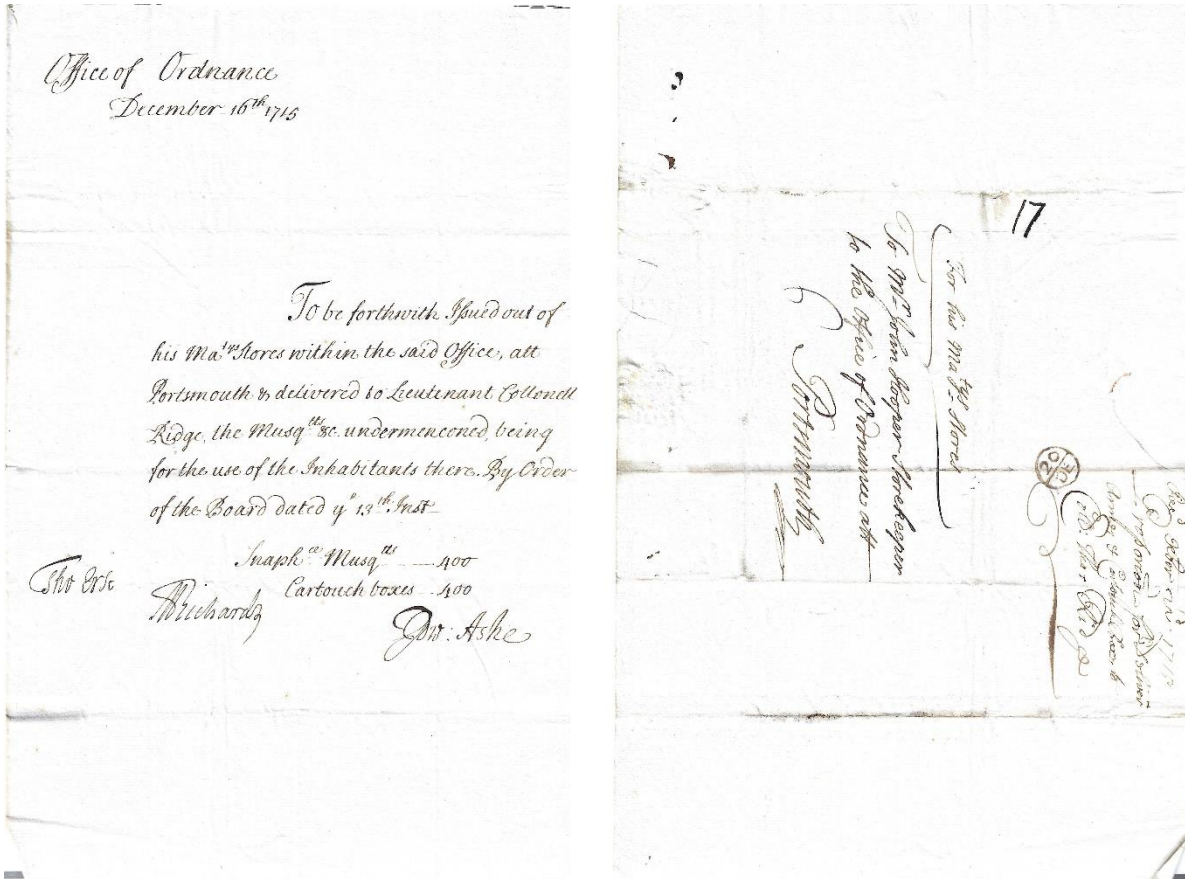 Office of Ordnance
December 16th 1715
To be forthwith Issued out of
his Matys Stores within the said Office, att
Portsmouth & delivered to Lieutenant Collonell
Ridge, the Musqtts &c. undermenconed, being
for the use of the Inhabitants there. By Order
of the Board dated ye 13th Inst
Snaphce Musqtts 400
Cartouch boxes 400
Tho Ersk
MRichards
Edw: Ashe
17
For his Matys Stores
To Mr John Hooper Storekeeper
to the Office of Ordnance att
Portsmouth
20 DE
1715
for deliver
to
Ridge